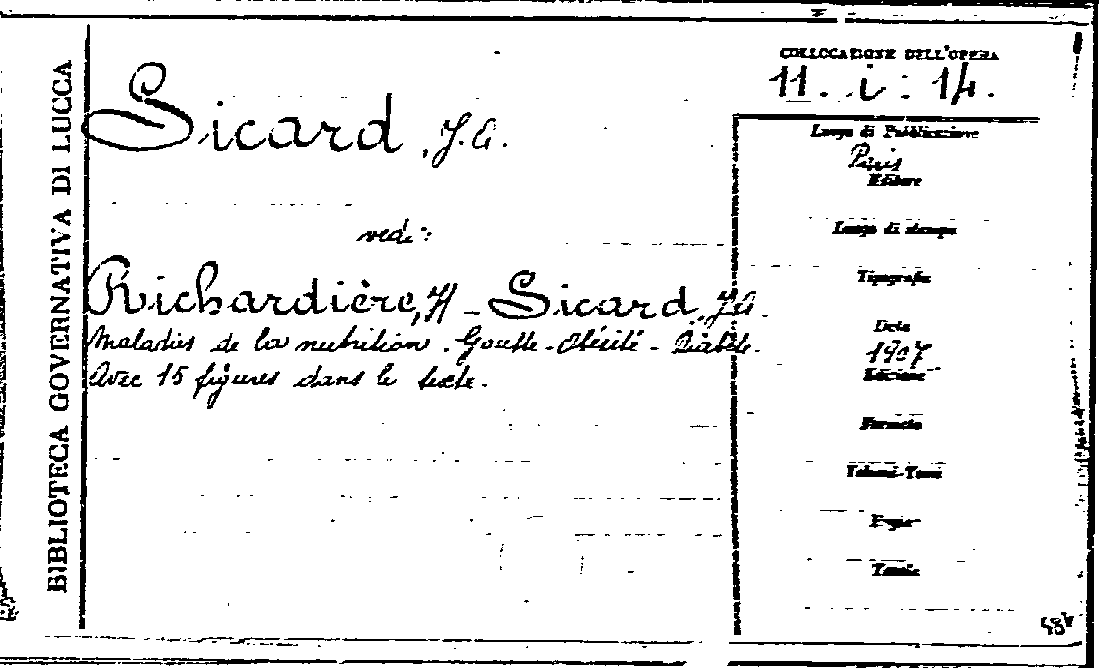 BIBLIOTECA GOVERNATIVA DI LUCCA
Sicard, J. A.
vedi:
Richardière, H - Sicard, J A.
Maladies de la nutrition. Goutte - Obésité - Diabète.
Avec 15 figures dans le texte.
COLLOCAZIONE DELL'OPERA
11. i: 14.
Luogo di Pubblicazione
Paris
Editore
Luogo di stampa
Tipografia
Data
1907
Edizione
Formato
Volumi-Tomi
Pagine
Tavole